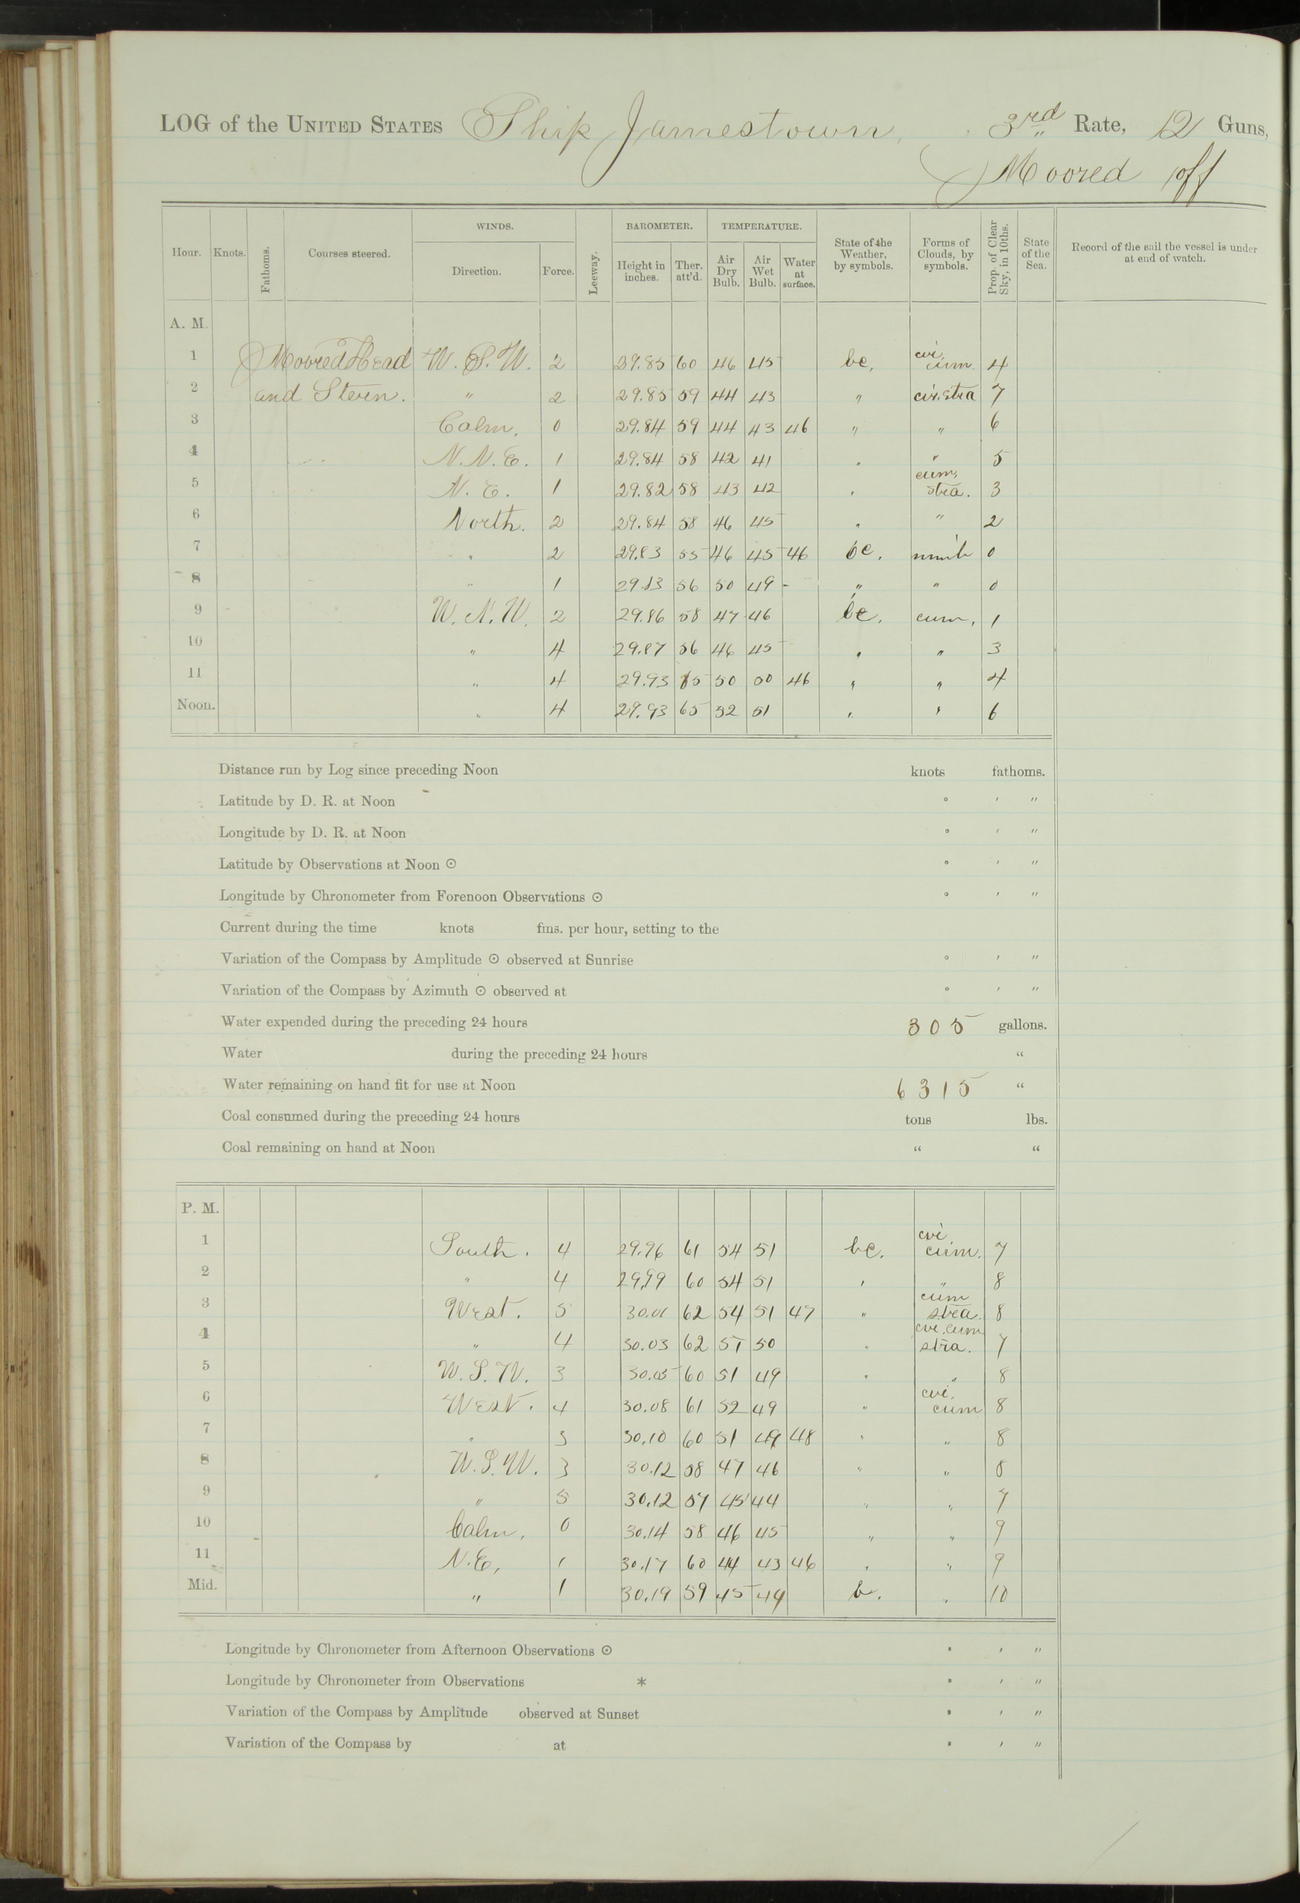 LOG of the UNITED STATES Ship Jamestown, 3rd Rate, 12 Guns,
Moored off
Hour. Knots. Fathoms. Courses steered. WINDS. Direction. Force. Leeway. BAROMETER. Height in inches. Ther. att'd. TEMPERATURE. Air Dry Bulb. Air Wet Bulb. Water at surface. State of the Weather, by symbols. Forms of Clouds, by symbols. Prop. of Clear Sky, in 10ths. State of the Sea. Record of the sail the vessel is under at end of watch.
A. M.
1 Moored Head W. S. W. 2 29.85 60 46 45 bc. cir. cum. 4
2 and Stern. " 2 29.85 59 44 43 " cir. stra 7
3 Calm. 0 29.84 59 44 43 46 " " 6
4 N. N. E. 1 29.84 58 42 41 " " 5
5 N. E. 1 29.82 58 43 42 " cum. stra. 3
6 North. 2 29.84 58 46 45 " " 2
7 " 2 29.83 55 46 45 46 oc. nimb 0
8 " 1 29.83 56 50 49 - " " 0
9 W. N. W. 2 29.86 58 47 46 bc. cum. 1
10 " 4 29.87 56 46 45 " " 3
11 " 4 29.93 65 50 50 46 " " 4
Noon. " 4 29.93 65 52 51 " " 6
Distance run by Log since preceding Noon knots fathoms.
Latitude by D. R. at Noon ° ' "
Longitude by D. R. at Noon ° ' "
Latitude by Observations at Noon ⊙ ° ' "
Longitude by Chronometer from Forenoon Observations ⊙ ° ' "
Current during the time knots fms. per hour, setting to the
Variation of the Compass by Amplitude ⊙ observed at Sunrise ° ' "
Variation of the Compass by Azimuth ⊙ observed at ° ' "
Water expended during the preceding 24 hours 305 gallons.
Water during the preceding 24 hours "
Water remaining on hand fit for use at Noon 6315 "
Coal consumed during the preceding 24 hours tons lbs.
Coal remaining on hand at Noon " "
P. M.
1 South. 4 29.96 61 54 51 bc. cir. cum. 7
2 " 4 29.99 60 54 51 " " 8
3 West. 5 30.01 62 54 51 47 " cum stra. 8
4 " 4 30.03 62 51 50 " cir. cum stra. 7
5 W. S. W. 3 30.05 60 51 49 " " 8
6 West. 4 30.08 61 52 49 " cir. cum 8
7 " 3 30.10 60 51 49 48 " " 8
8 W. S. W. 3 30.12 58 47 46 " " 8
9 " 5 30.12 57 45 44 " " 7
10 Calm. 0 30.14 58 46 45 " " 9
11 N. E, 1 30.17 60 44 43 46 " " 9
Mid. " 1 30.19 59 45 44 b. " 10
Longitude by Chronometer from Afternoon Observations ⊙ ° ' "
Longitude by Chronometer from Observations * ° ' "
Variation of the Compass by Amplitude observed at Sunset ° ' "
Variation of the Compass by at ° ' "